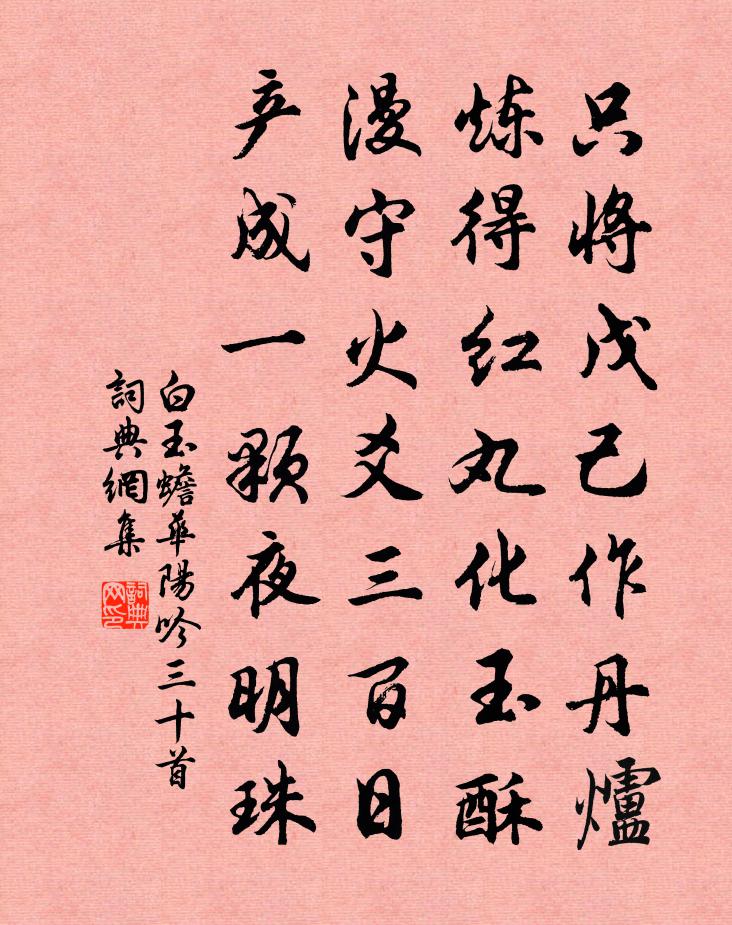 只将戊己作丹爐
炼得红丸化玉酥
漫守火爻三百日
产成一颗夜明珠
白玉蟾華陽吟三十首
詞典網集
詞典网印